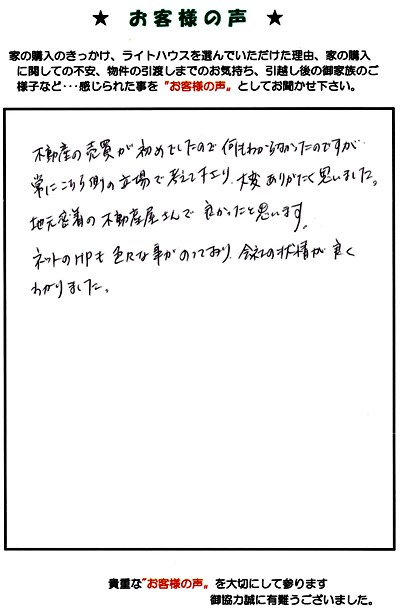 ★ お客様の声 ★
家の購入のきっかけ、ライトハウスを選んでいただけた理由、家の購入
に関しての不安、物件の引渡しまでのお気持ち、引越し後の御家族のご
様子など・・・感じられた事を "お客様の声" としてお聞かせ下さい。
不動産の売買が初めてでしたので何もわからなかったのですが
常にこちら側の立場で考えて下さり、大変ありがたく思いました。
地元密着の不動産屋さんで良かったと思います。
ネットのHPも色々な事がのっており、会社の状情が良く
わかりました。
貴重な"お客様の声" を大切にして参ります
御協力誠に有難うございました。